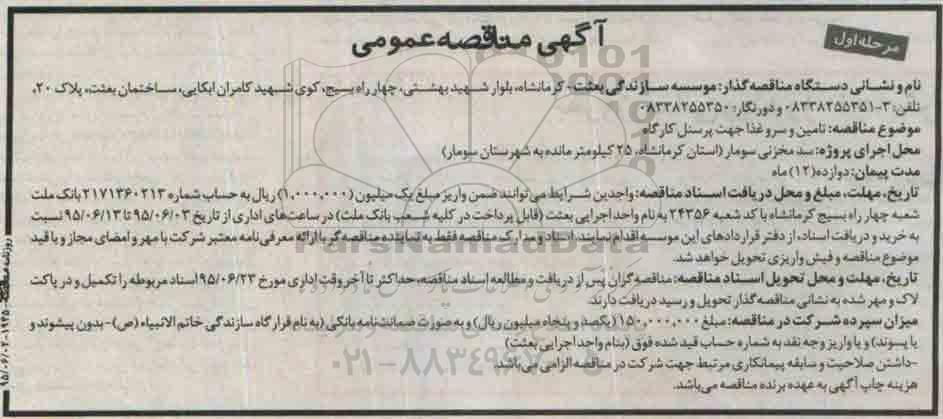 مرحله اول
آگهی مناقصه عمومی
نام و نشانی دستگاه مناقصه گذار: موسسه سازندگی بعثت - کرمانشاه، بلوار شهید بهشتی، چهار راه بسیج، کوی شهید کامران ابکایی، ساختمان بعثت، پلاک ۲۰،
تلفن: ۳-۰۸۳۳۸۲۵۵۳۵۱ و دورنگار: ۰۸۳۳۸۲۵۵۳۵۰
موضوع مناقصه: تامین و سرو غذا جهت پرسنل کارگاه
محل اجرای پروژه: سد مخزنی سومار (استان کرمانشاه، ۲۵ کیلومتر مانده به شهرستان سومار)
مدت پیمان: دوازده (۱۲) ماه
تاریخ، مهلت، مبلغ و محل دریافت اسناد مناقصه: واجدین شرایط می توانند ضمن واریز مبلغ یک میلیون (۱,۰۰۰,۰۰۰) ریال به حساب شماره ۲۱۷۱۳۶۰۲۱۳ بانک ملت
شعبه چهار راه بسیج کرمانشاه با کد شعبه ۲۴۳۵۶ به نام واحد اجرایی بعثت (قابل پرداخت در کلیه شعب بانک ملت) در ساعت‌های اداری از تاریخ ۹۵/۰۶/۰۳ تا ۹۵/۰۶/۱۳ نسبت
به خرید و دریافت اسناد، از دفتر قراردادهای این موسسه اقدام نمایند. اسناد و مدارک مناقصه فقط به نماینده مناقصه گر با ارائه معرفی نامه معتبر شرکت با مهر و امضای مجاز و با قید
موضوع مناقصه و فیش واریزی تحویل خواهد شد.
تاریخ، مهلت و محل تحویل اسناد مناقصه: مناقصه گران پس از دریافت و مطالعه اسناد مناقصه، حداکثر تا آخر وقت اداری مورخ ۹۵/۰۶/۲۳ اسناد مربوطه را تکمیل و در پاکت
لاک و مهر شده به نشانی مناقصه گذار تحویل و رسید دریافت دارند.
میزان سپرده شرکت در مناقصه: مبلغ ۱۵۰,۰۰۰,۰۰۰ (یکصد و پنجاه میلیون ریال) و به صورت ضمانتنامه بانکی (به نام قرارگاه سازندگی خاتم الانبیاء (ص) - بدون پیشوند و
یا پسوند) و یا واریز وجه نقد به شماره حساب قید شده فوق (بنام واحد اجرایی بعثت)
-داشتن صلاحیت و سابقه پیمانکاری مرتبط جهت شرکت در مناقصه الزامی می باشد.
هزینه چاپ آگهی به عهده برنده مناقصه می‌باشد.
ParsNamadData
۰۲۱-۸۸۳۴۹۶۷۰